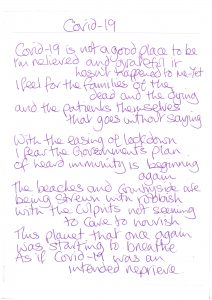 Covid-19
Covid-19 is not a good place to be
I'm relieved and grateful it
hasn't happened to me-yet
I feel for the families of the
dead and the dying
and the patients themselves
that goes without saying
With the easing of lockdown
I fear the Government's plan
of heard immunity is beginning
again
The beaches and countryside are
being strewn with rubbish
with the culprits not seeming
to care to nourish
This planet that once again
was starting to breathe
As if Covid-19 was an
intended reprieve